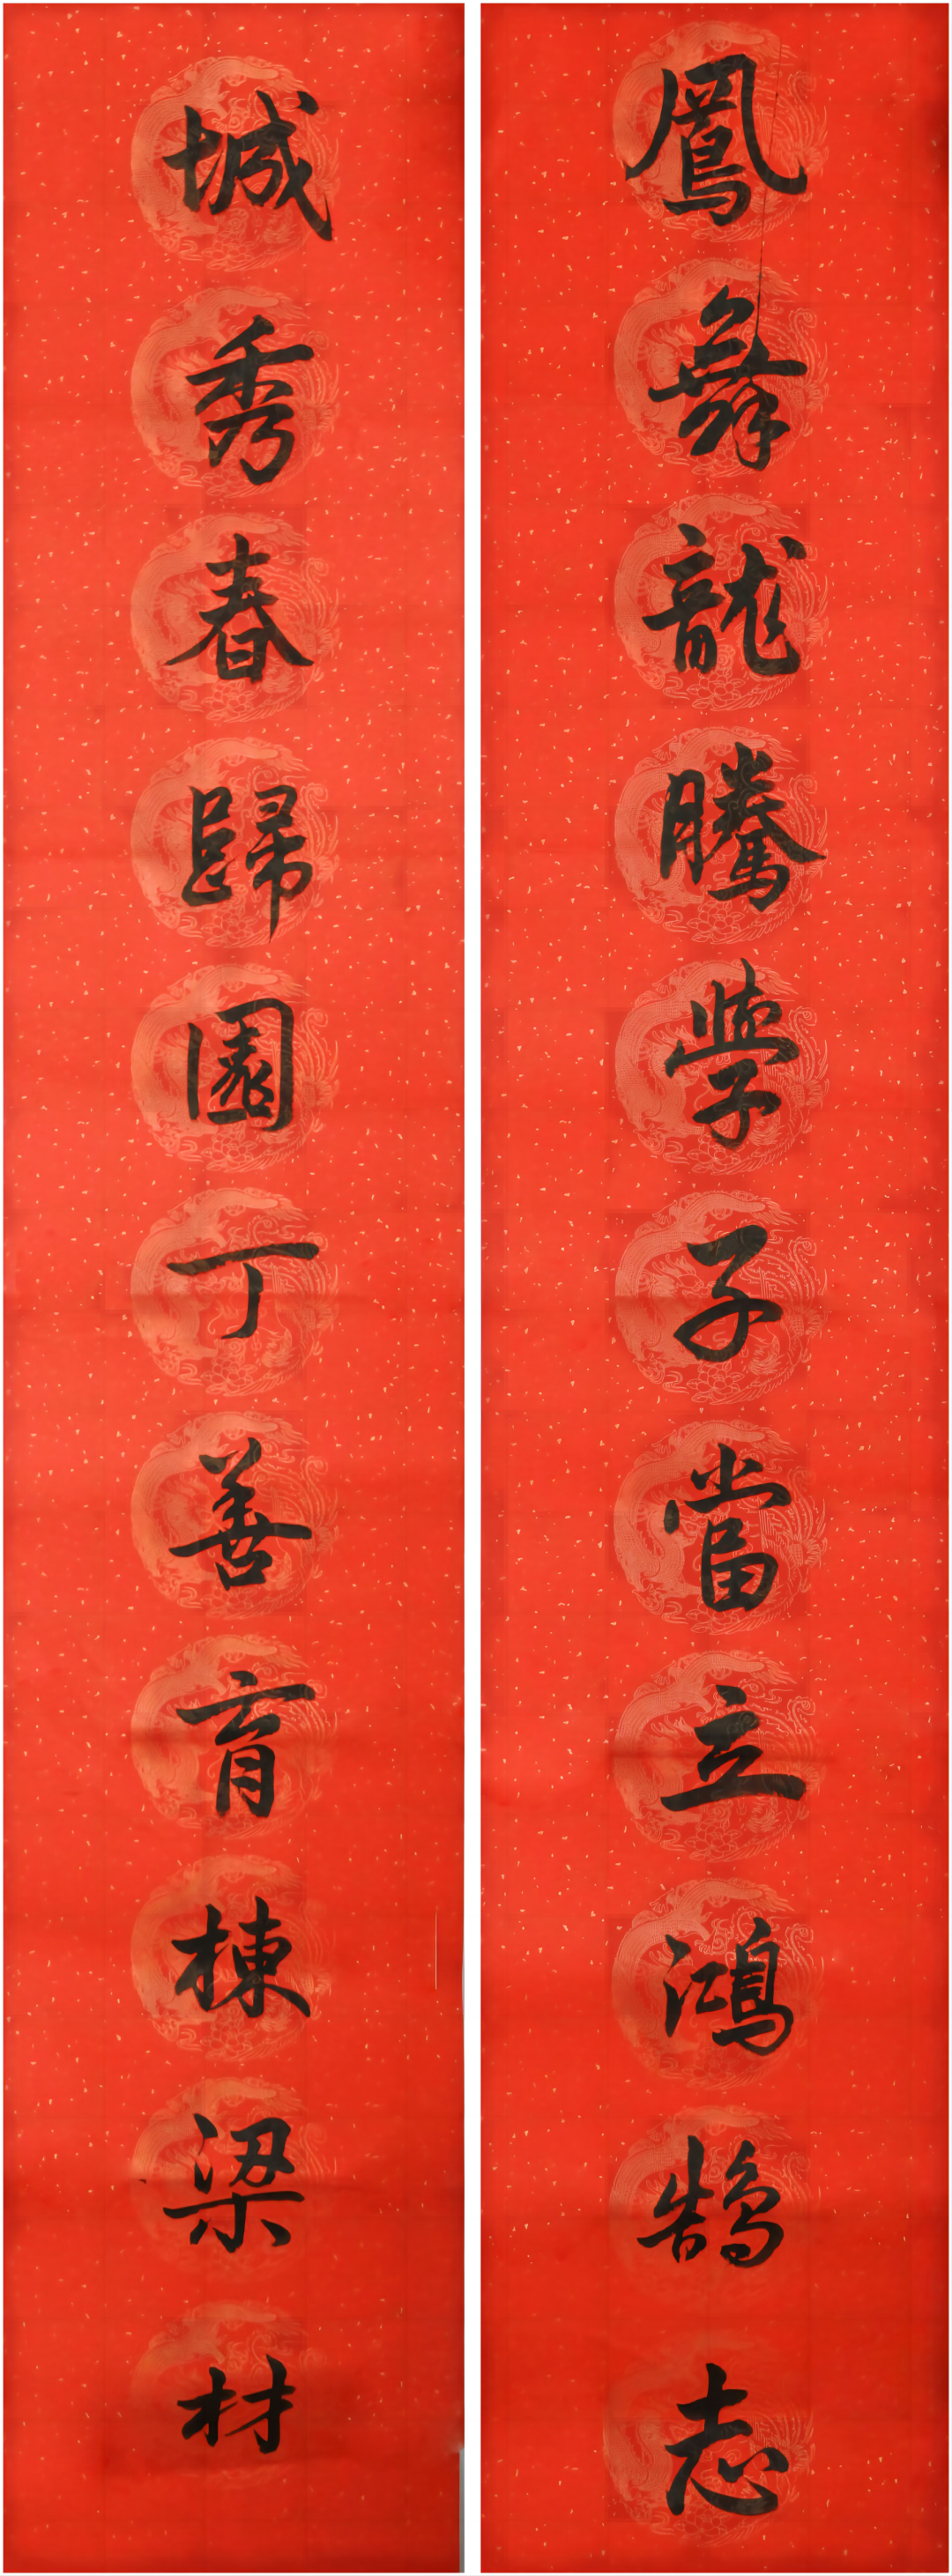 鳳舞龍騰學子當立鴻鵠志
城秀春歸園丁善育棟梁材